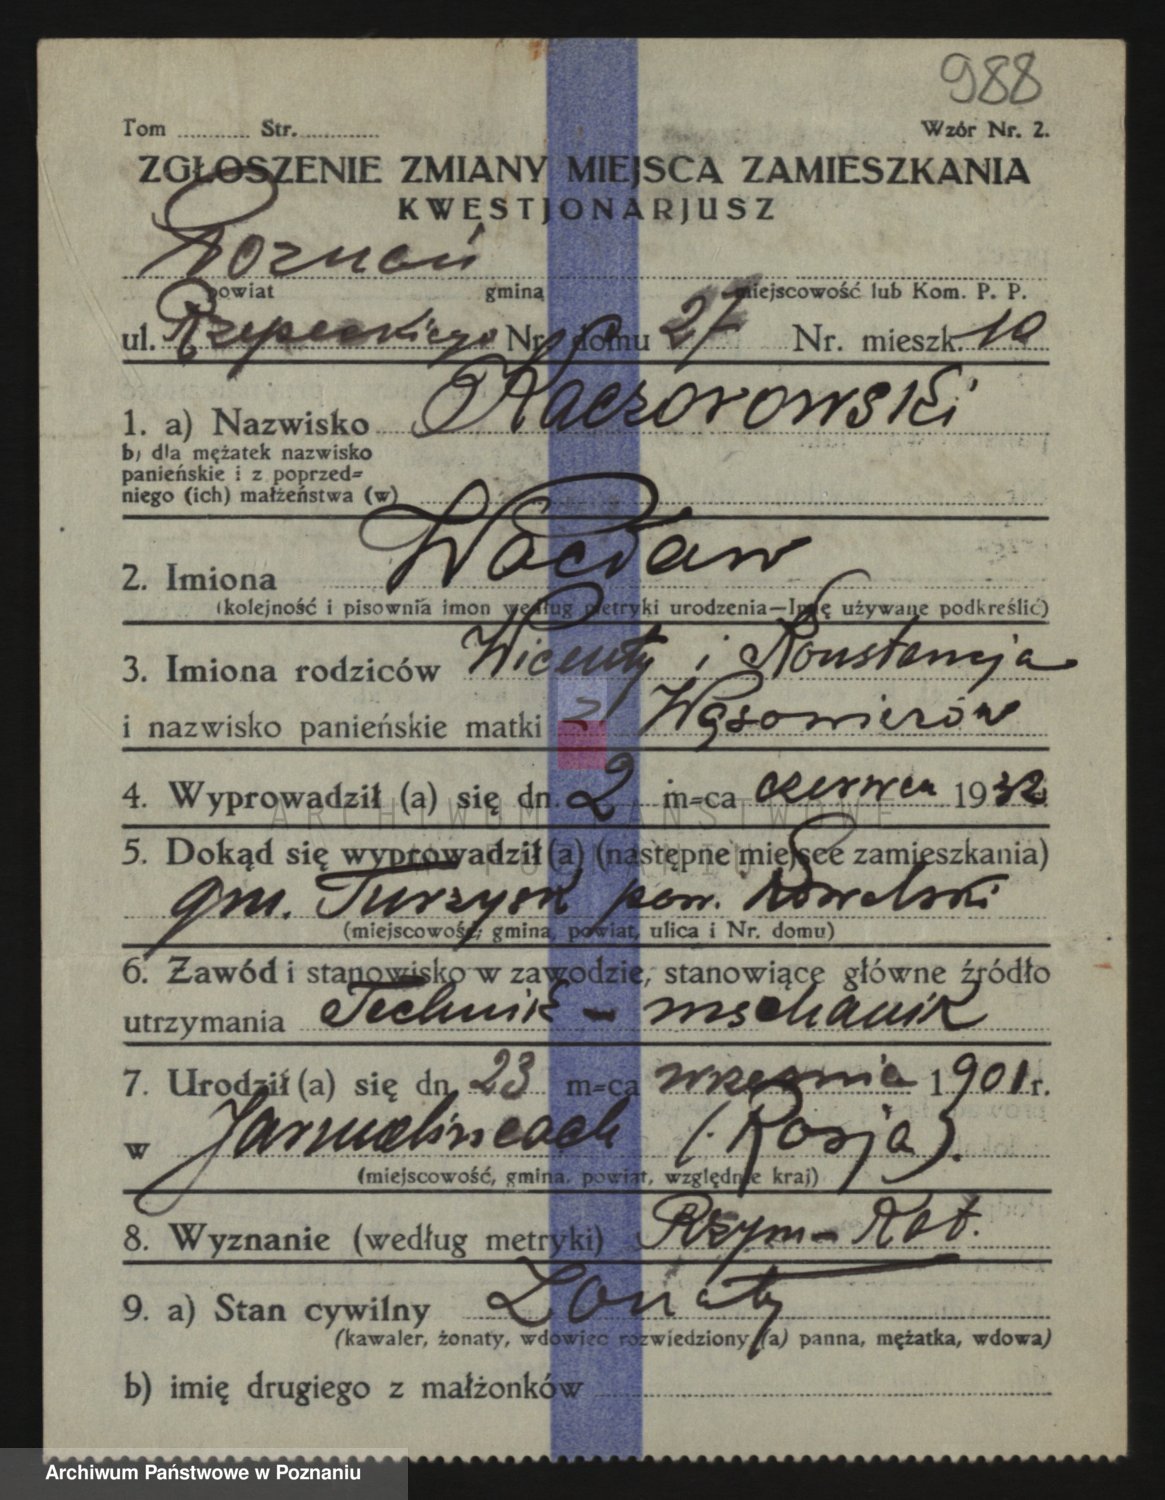 988
Tom ........... Str. ............
Wzór Nr. 2.
ZGŁOSZENIE ZMIANY MIEJSCA ZAMIESZKANIA
KWESTJONARJUSZ
Poznań
powiat gmina miejscowość lub Kom. P. P.
ul. Rzepeckiego Nr. domu 27 Nr. mieszk. 10
1. a) Nazwisko Kaczorowski
b) dla mężatek nazwisko
panieńskie i z poprzed=
niego (ich) małżeństwa (w)
2. Imiona Wacław
(kolejność i pisownia imon według metryki urodzenia—Imię używane podkreślić)
3. Imiona rodziców Wicenty i Konstancja
i nazwisko panieńskie matki z Wąsowiczów
4. Wyprowadził (a) się dn. 2 m=ca czerwca 1932
ARCHIWUM PAŃSTWOWE
W POZNANIU
5. Dokąd się wyprowadził (a) (następne miejsce zamieszkania)
gm. Turzysk pow. Kowelski
(miejscowość, gmina, powiat, ulica i Nr. domu)
6. Zawód i stanowisko w zawodzie, stanowiące główne źródło
utrzymania Technik - mechanik
7. Urodził (a) się dn. 23 m=ca września 1901 r.
w Jarmolińcach (Rosja).
(miejscowość, gmina, powiat, względnie kraj)
8. Wyznanie (według metryki) Rzym-Kat.
9. a) Stan cywilny Żonaty
(kawaler, żonaty, wdowiec rozwiedziony (a) panna, mężatka, wdowa)
b) imię drugiego z małżonków
Archiwum Państwowe w Poznaniu